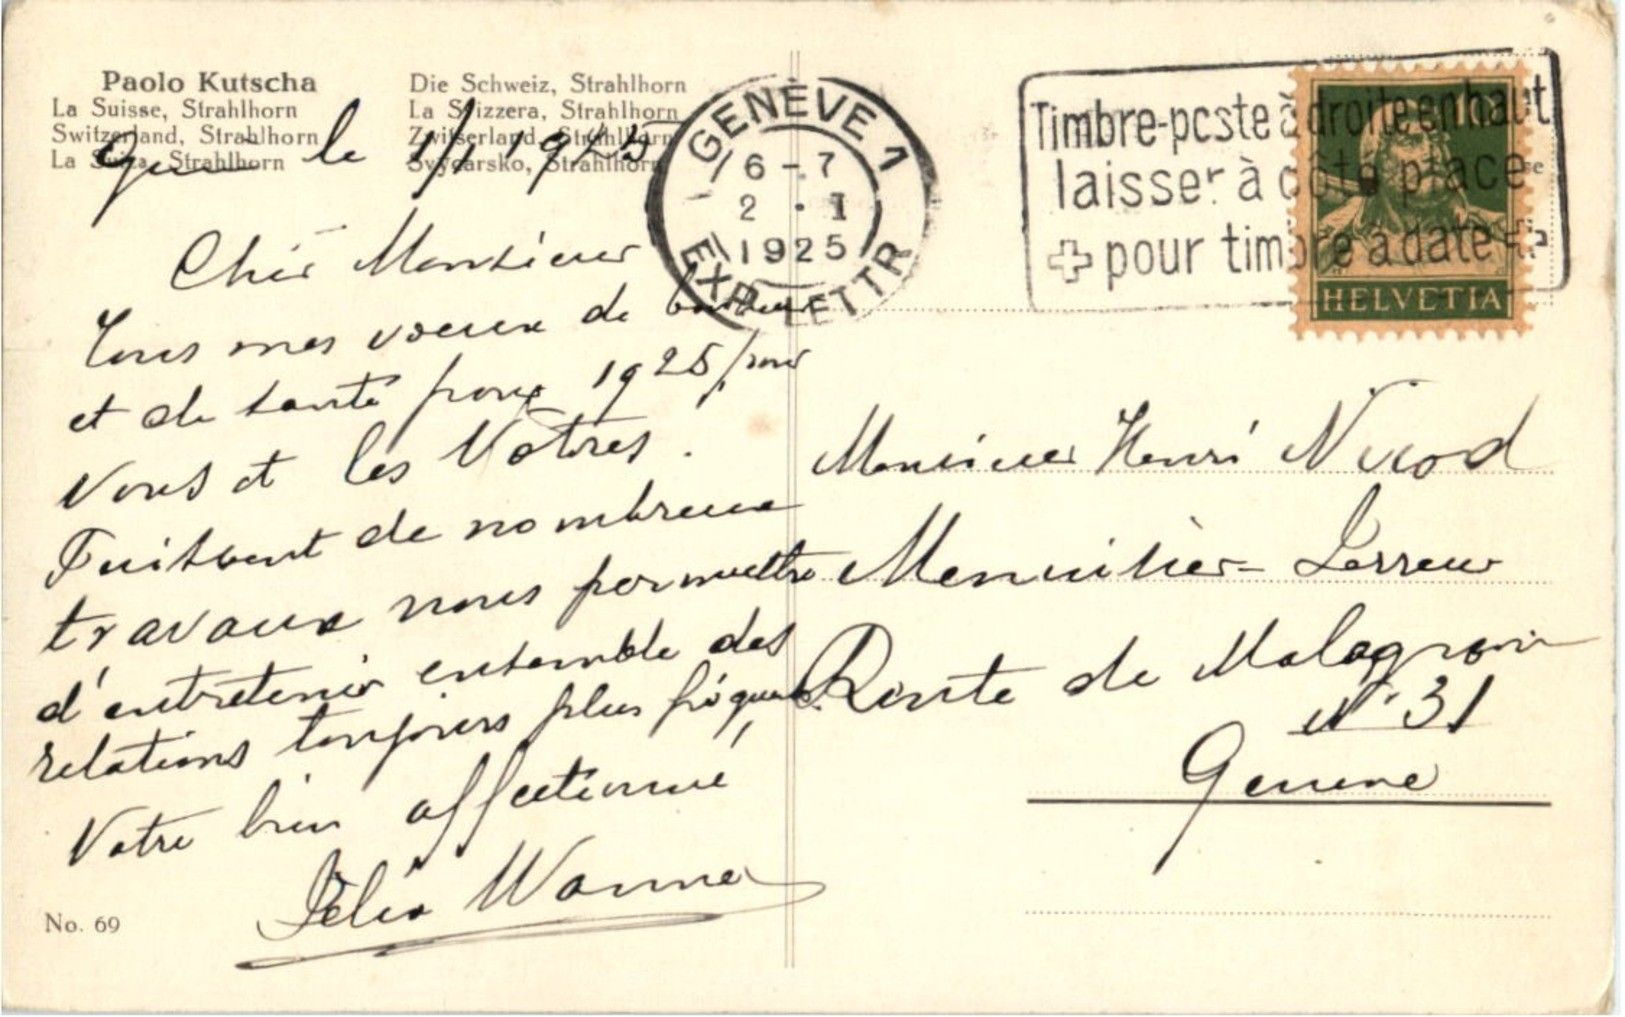 Paolo Kutscha
La Suisse, Strahlhorn
Switzerland, Strahlhorn
La Suiza, Strahlhorn
Die Schweiz, Strahlhorn
La Svizzera, Strahlhorn
Zwitserland, Strahlhorn
Svycarsko, Strahlhorn
le 1/1 1925
Cher Monsieur
Tous mes voeux de bonheur
et de santé pour 1925, pour
Vous et les Vôtres.
Puissent de nombreux
travaux nous permettre
d'entretenir ensemble des
relations toujours plus fréquentes.
Votre bien affectionné
Félix
No. 69
GENÈVE 1
6-7
2 · I
1925
EXP. LETTR
Timbre-poste à droite en haut
laisser à côté place
pour timbre à date
10
HELVETIA
Monsieur Henri Nicod
Menuisier-
Route de Malagnou
N° 31
Genève